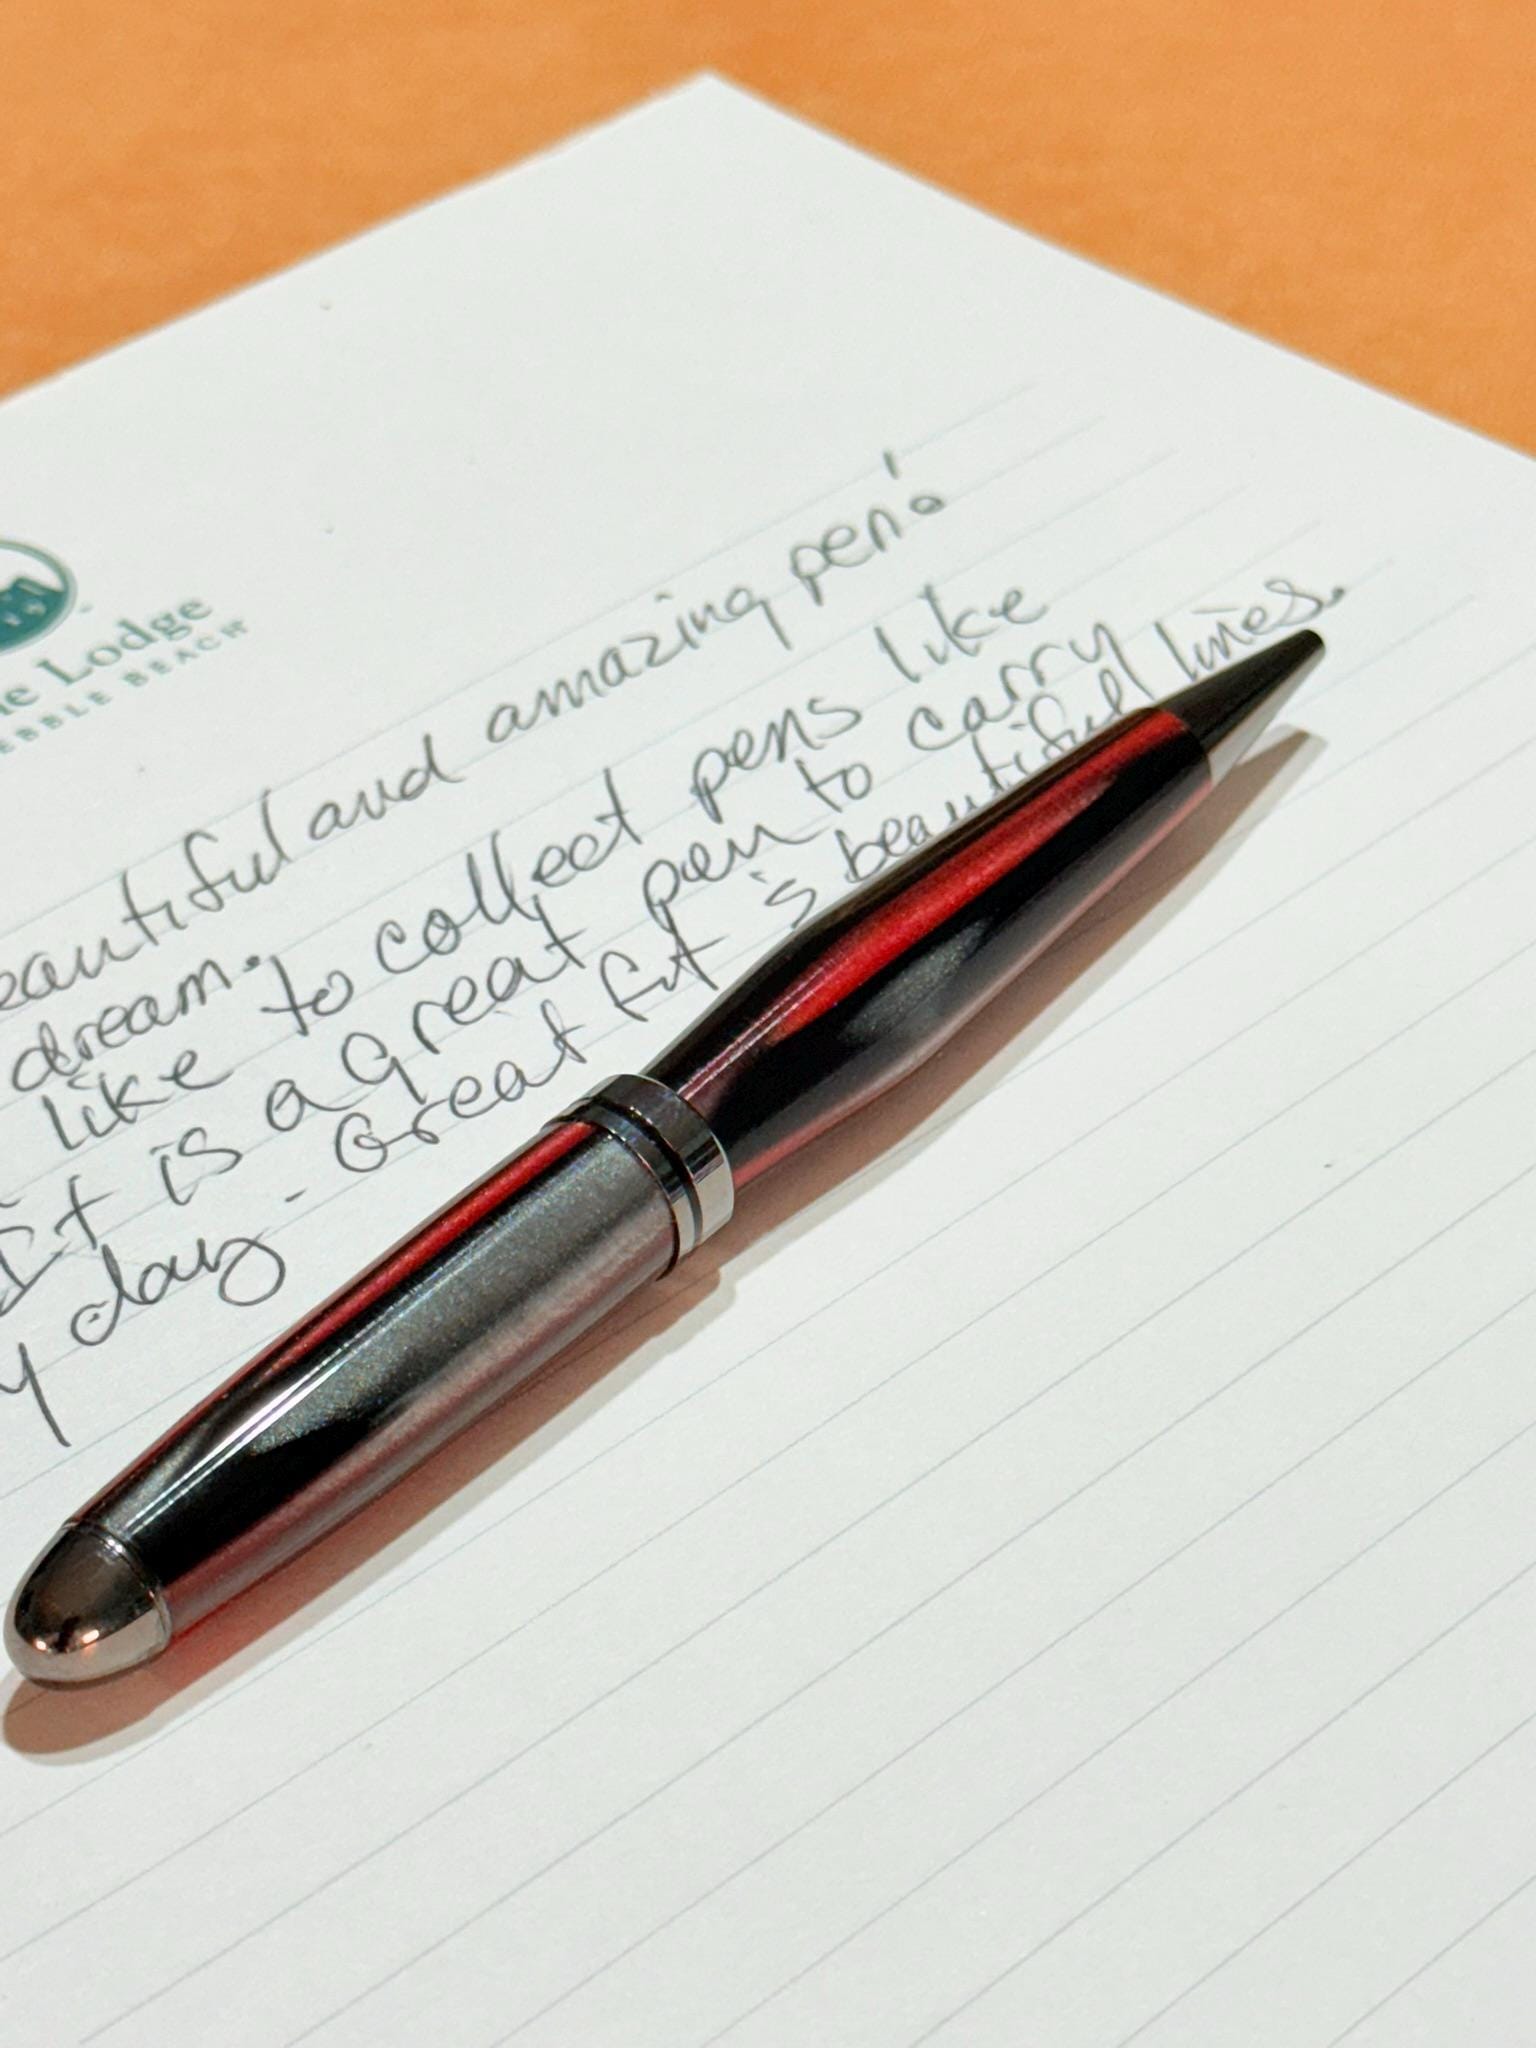 he Lodge
EBBLE BEACH
eautiful and amazing pen!
dream.
like to collect pens like
It is a great pen to carry
y day. Great fit & beautiful lines.